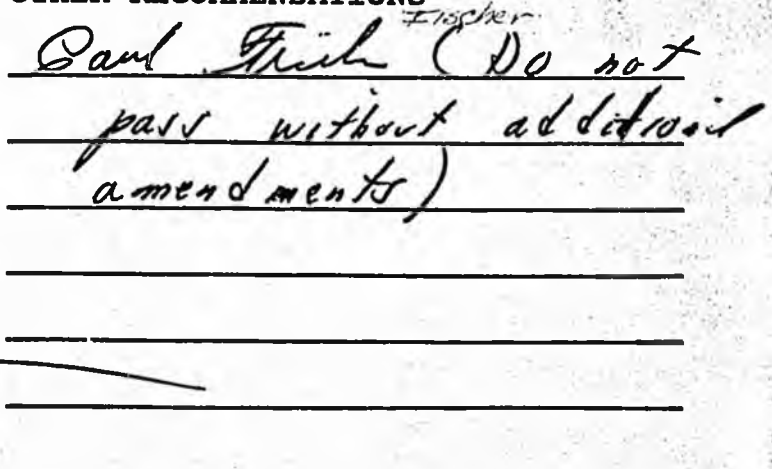 OTHER RECOMMENDATIONS
Fischer
Paul Fisch (Do not
pass without additional
amendments)